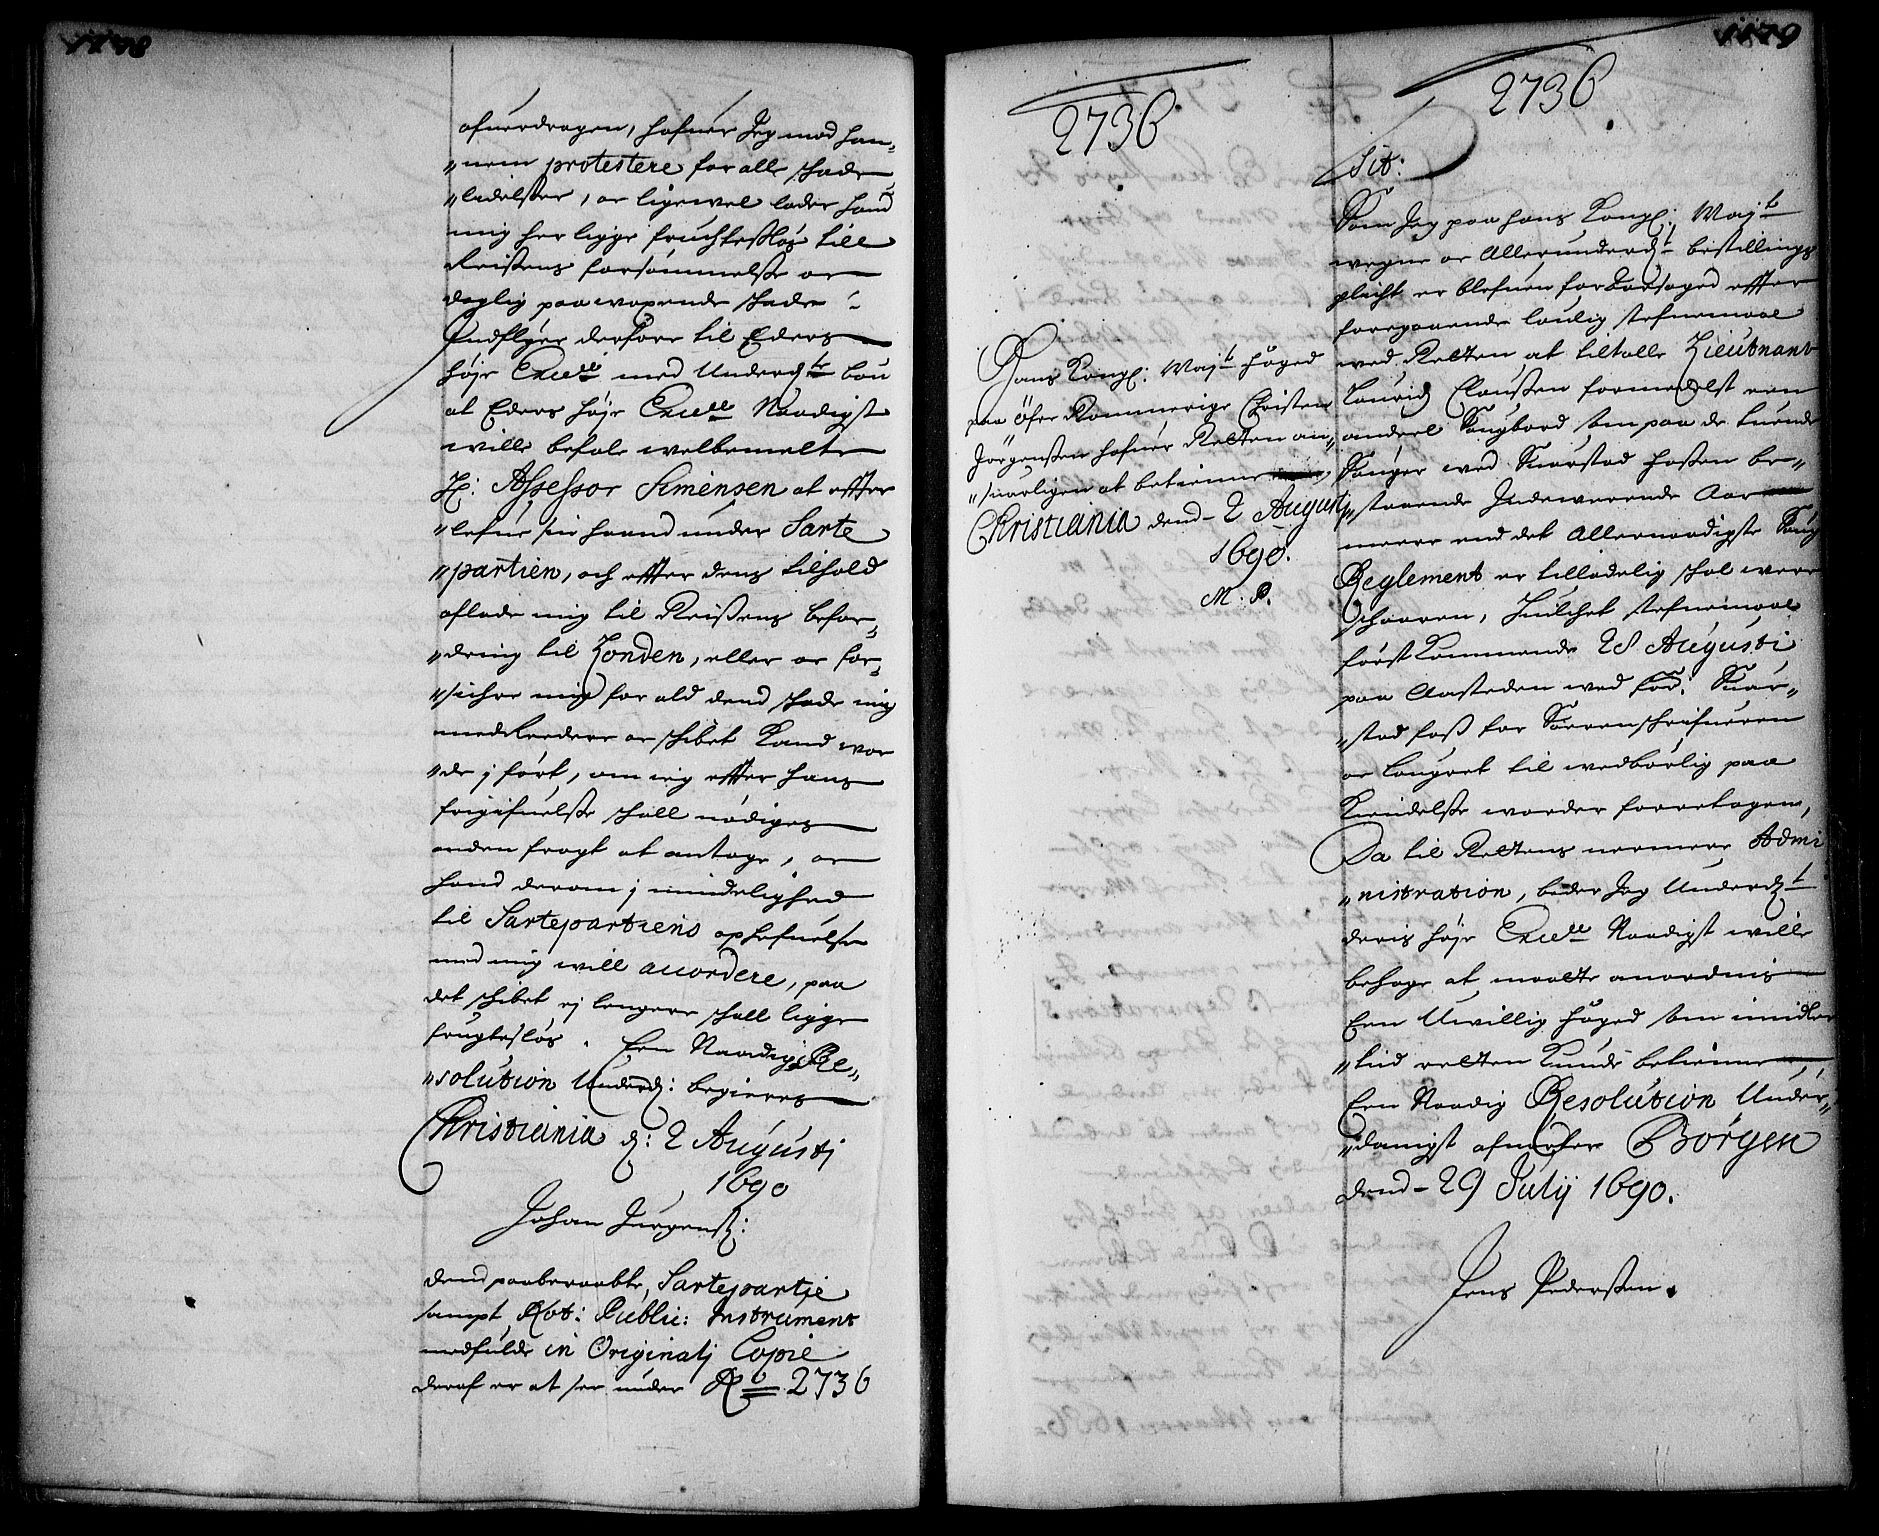 1178
ofuerdragen, hafuer Jeg mod han-
"nem protestere for alle skade
"lidelsser, oc ligewel lader hand
mig her ligge fruchtessløs till
Reissens forsømmelsse oc
daglig paawoxende skade.
Indflyer derfore til Eders
høje Excell med Underdte bøn
at Eders høje Excell Naadigst
wille befale welbemelte
H: Assessor Simensen at effter
"lefue sin haand under Sarte
"partien, och effter dens tilhold
aflade mig til Reissens befor-
"dring til Londen, eller oc for-
"sichre mig for ald dend skade mig
med Reedere oc skibet Kand wor
"de j ført, om ieg effter hans
frigifuelsse skall nødiges
anden fragt at antage, oc
hand derom j mindelighed
til Sartepartiens ophefuelse
med mig will accordere, paa
det skibet ej lengere skall ligge
frugtesløs. Een Naadig Re-
"solution Underd: begieres
Christiania d: 2 Augustj
1690
Johan Jurgenss:
dend paaberaabte Sartepartie
sampt Not: Public: Instrument
medfulde in Originalj Copie
deraf er at see under No 2736
1179
2736
Hans Kongl: Mayts foged
paa öfre Rommerige Christen
Jörgenssen hafuer Retten an-
"suarligen at betienne
Christiania dend 2 Augustj
1690.
M. P.
2736
Tit:
Som Jeg paa hans Kongl: Mayts
wegne oc Allerunderdt bestillings
plicht er blefuen foraarsaged effter
foregaaende loulig stefnemaal
wed Retten at tiltalle Lieutnant
Laurids Claussen formedelst een
andeel Saugbord som paa de tuende
Sauger wed Kuerstad fossen be-
"staaende Indewerende Aar
meere end det Allernaadigste Saug
Reglement er tilladelig skal were
skaaren, Huilchet stefnemaal
först Kommende 28 Augusti
paa Aasteden wed for: Kuer-
"stad foss for Sorenschrifueren
oc Laugret til wedbörlig paa
Kiendelsse worder foretagen,
Da til Rettens nermere Admi
"nistration, beder Jeg Underdt
deris høje Excell Naadigst wille
behage at maatte anordnis
Een Uwillig foged som imidler
"tid retten Kunde betienne,
Een Naadig Resolution Under-
"danigst afuarter Börgen
dend 29 Julij 1690.
Jens Pederssen.